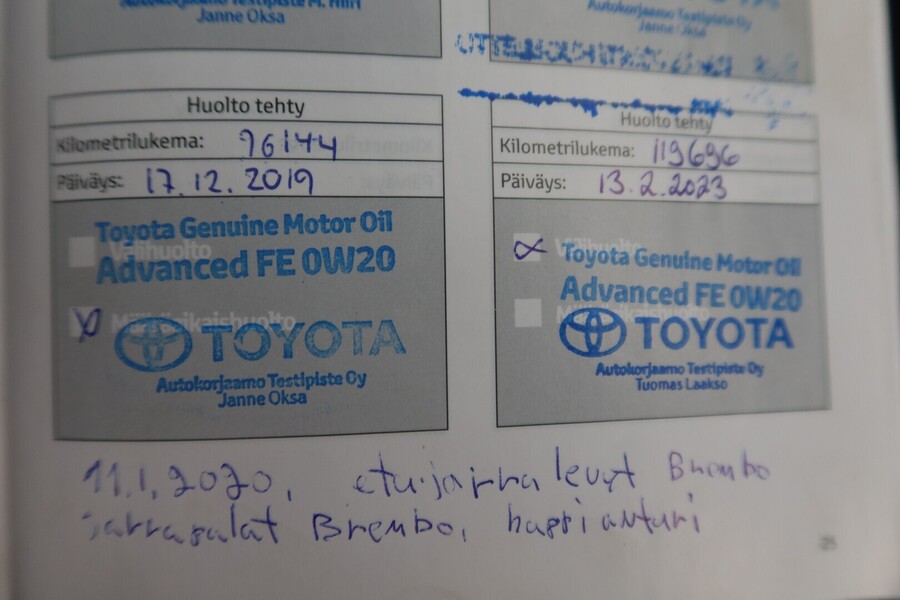 Autokorjaamo Testipiste M. Hiiri
Janne Oksa
Autokorjaamo Testipiste Oy
Janne Oksa
Huolto tehty
Kilometrilukema: 96144
Päiväys: 17.12.2019
Välihuolto
Toyota Genuine Motor Oil
Advanced FE 0W20
Määräaikaishuolto
TOYOTA
Autokorjaamo Testipiste Oy
Janne Oksa
Huolto tehty
Kilometrilukema: 119696
Päiväys: 13.2.2023
Välihuolto
Toyota Genuine Motor Oil
Advanced FE 0W20
Määräaikaishuolto
TOYOTA
Autokorjaamo Testipiste Oy
Tuomas Laakso
11.1.2020, etujarralevyt Brembo
Jarrupalat Brembo, happianturi
25